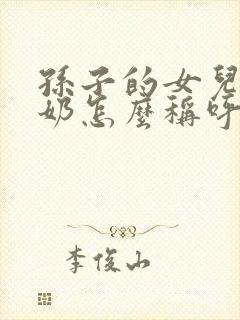 孫子的女兒
奶怎麼稱呼
李俊山